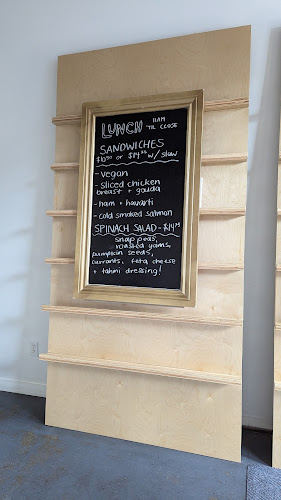 LUNCH 11AM 'TIL CLOSE
SANDWICHES
$10.50 or $14.25 w/ slaw
- Vegan
- Sliced chicken
breast + gouda
- ham + havarti
- cold smoked salmon
SPINACH SALAD - $14.75
snap peas,
roasted yams,
pumpkin seeds,
currants, feta cheese
+ tahini dressing!